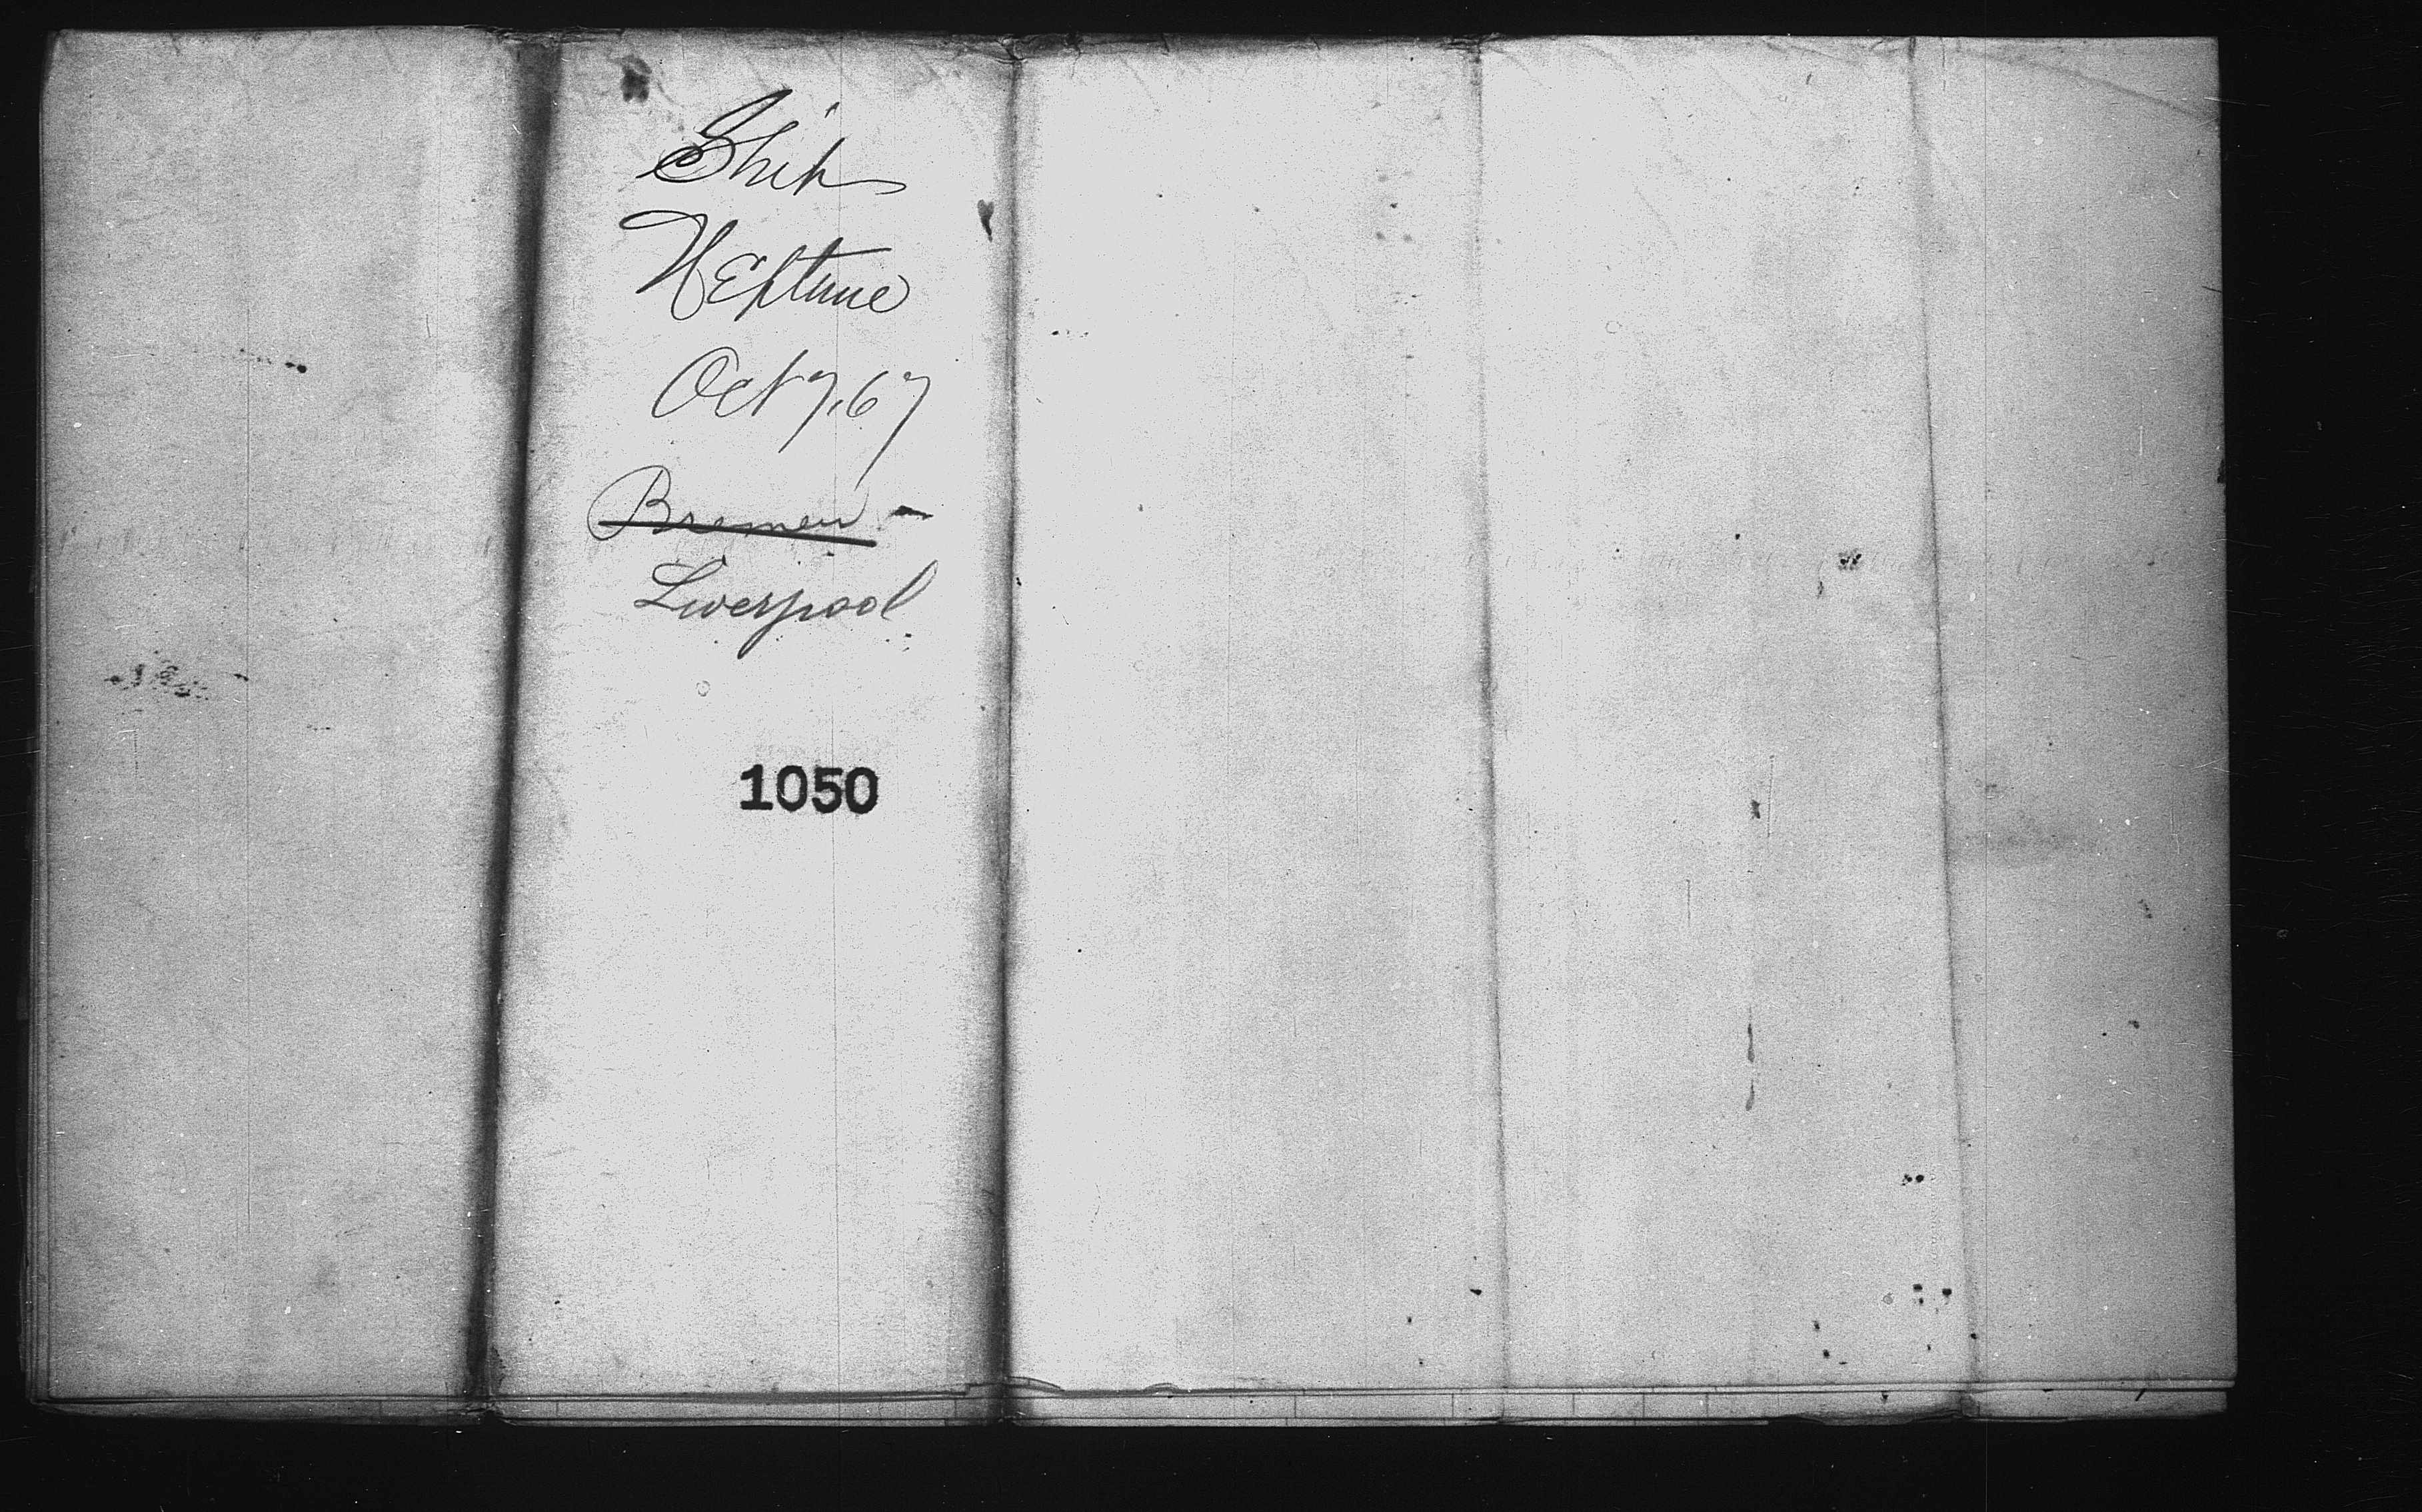 Ship
Neptune
Oct 7, 67
Bremen -
Liverpool
1050